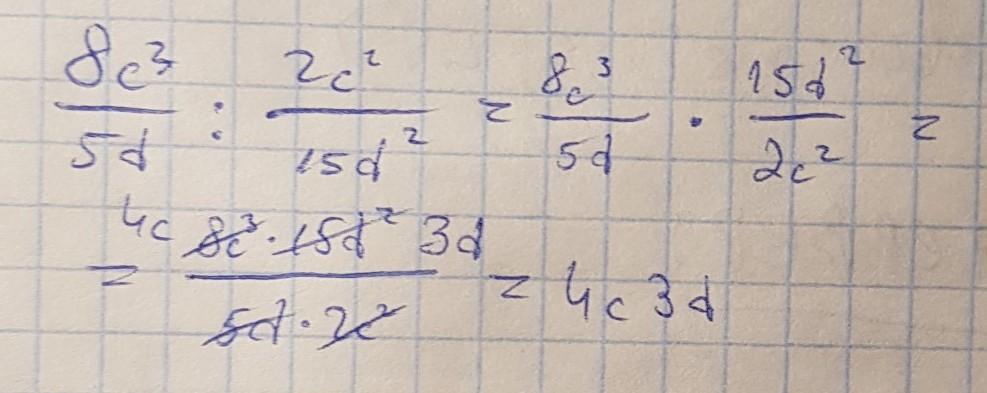 8c³/5d : 2c²/15d² = 8c³/5d · 15d²/2c² =
= 4c 8c³·15d² 3d/5d·2c² = 4c3d